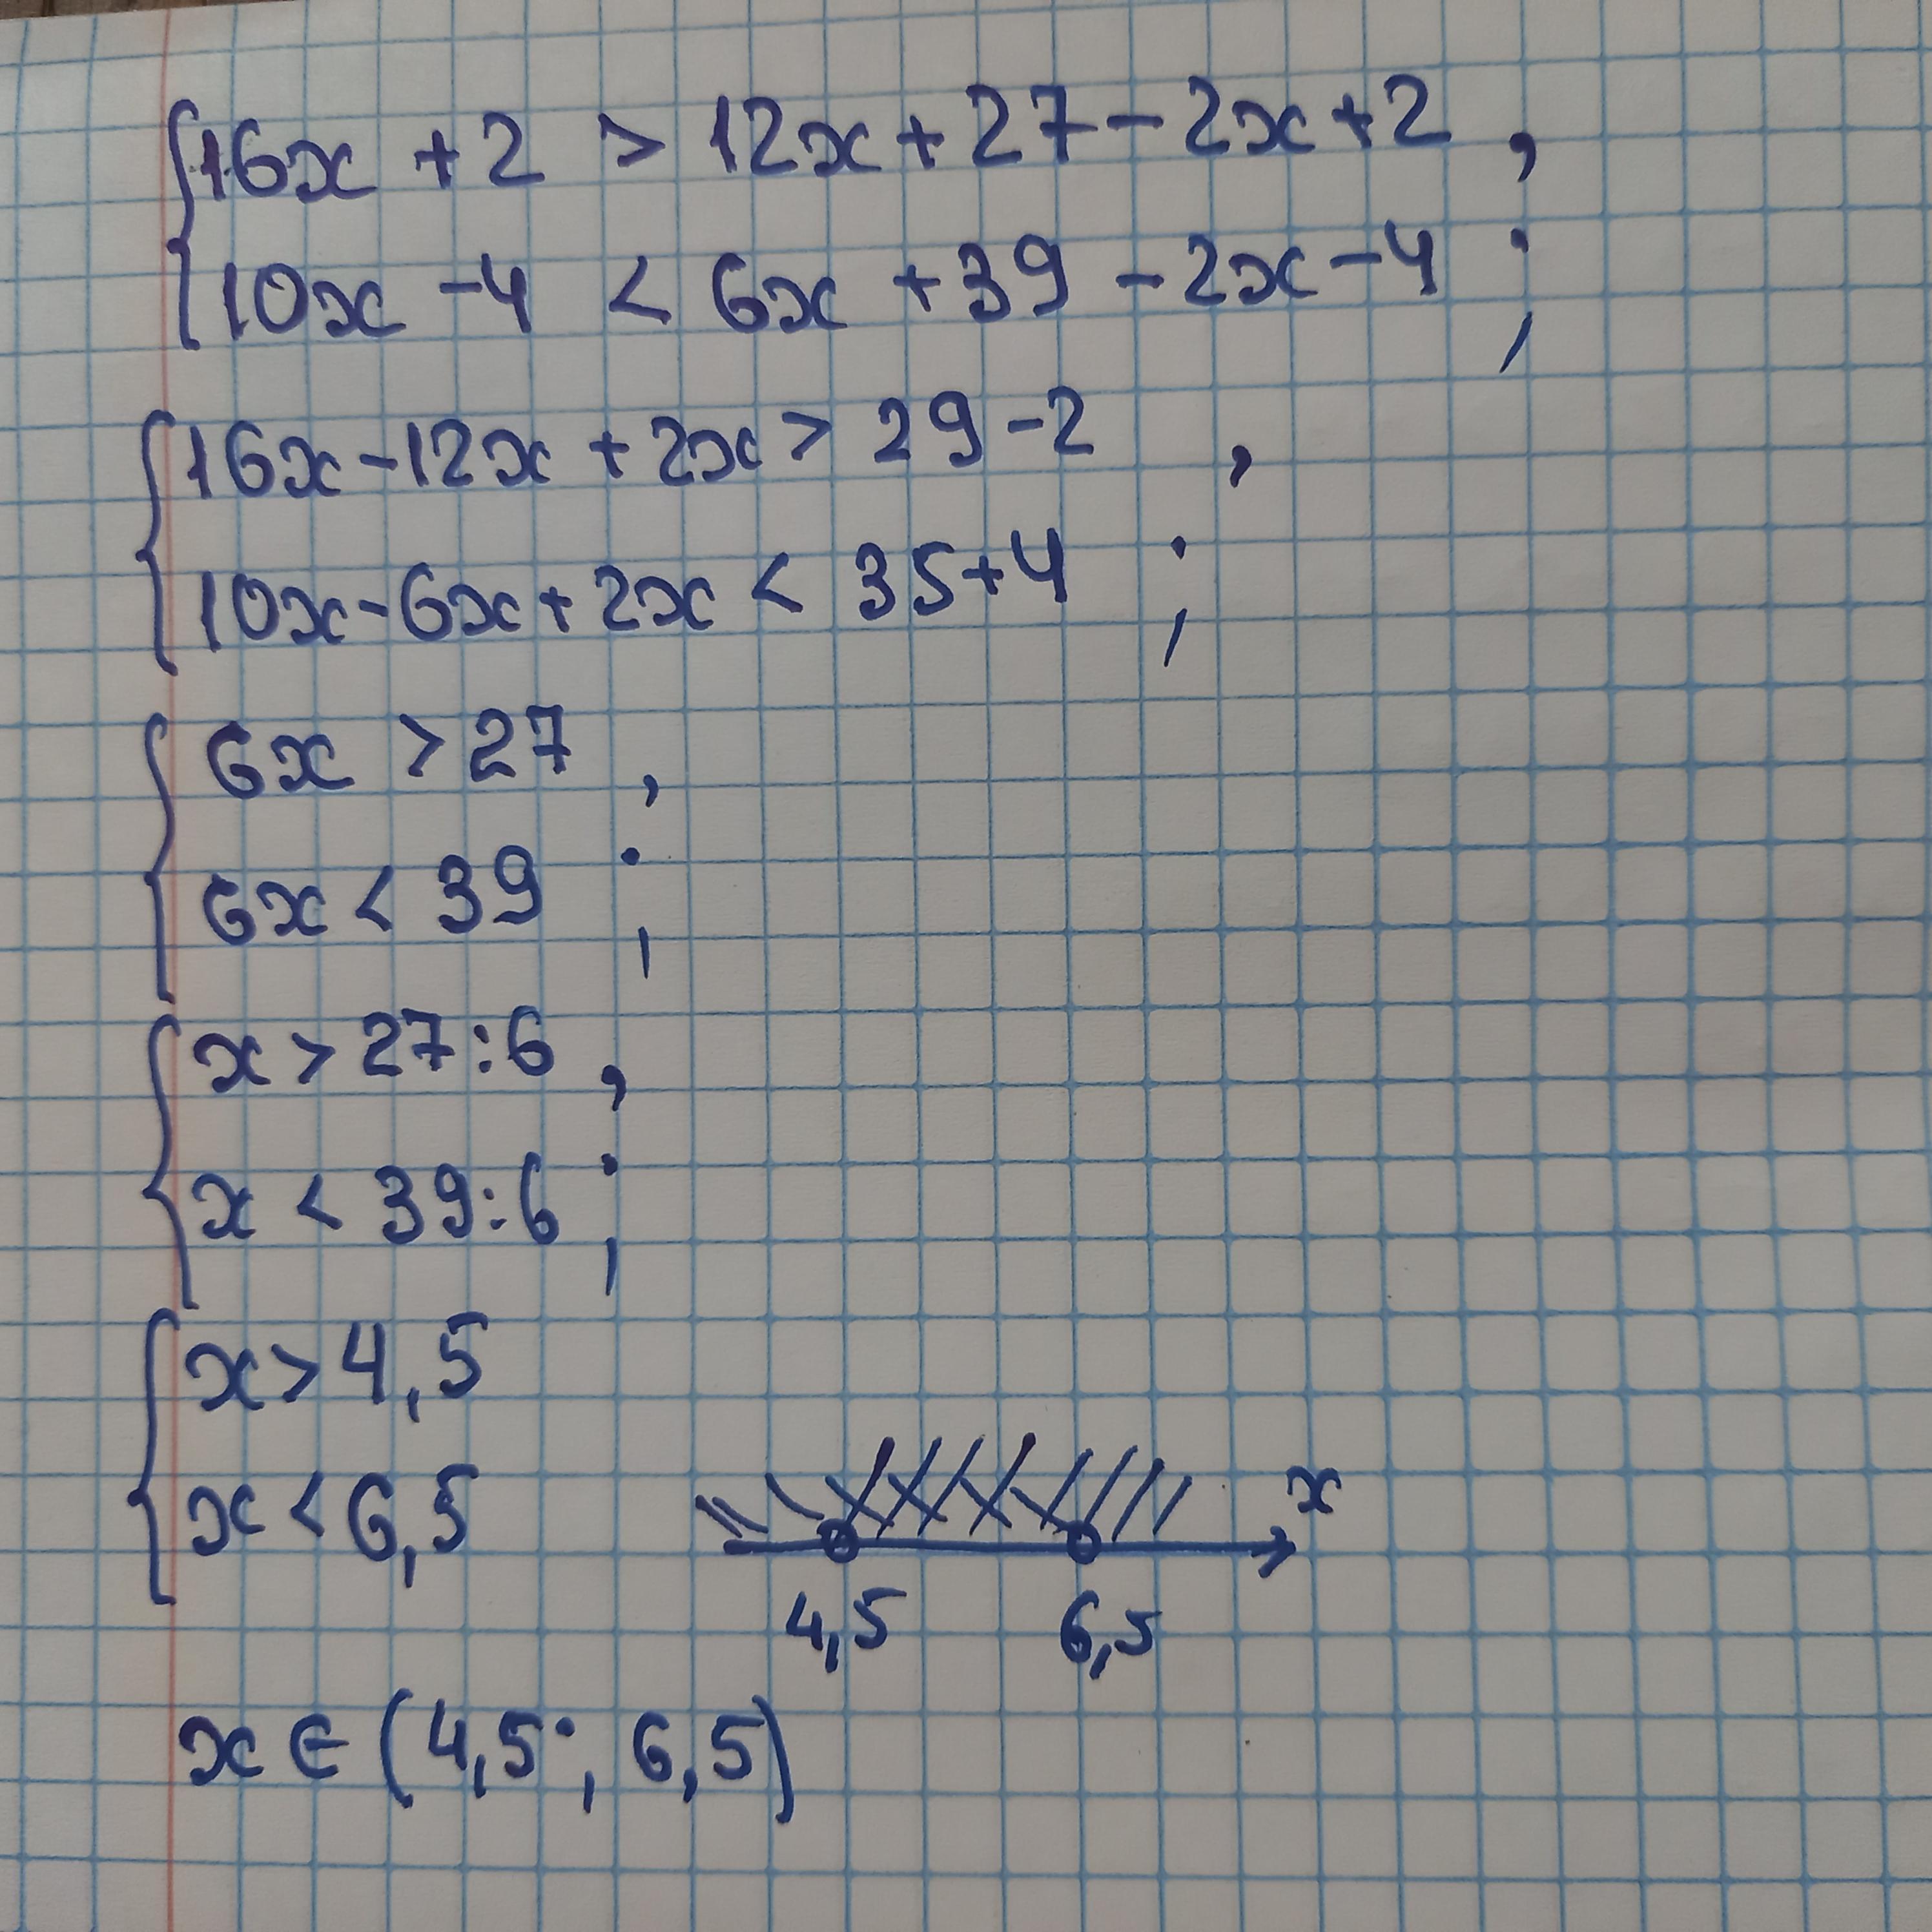 16x + 2 > 12x + 27 - 2x + 2 ,
10x - 4 < 6x + 39 - 2x - 4 ;
16x - 12x + 2x > 29 - 2 ,
10x - 6x + 2x < 35 + 4 ;
6x > 27 ,
6x < 39 ;
x > 27 : 6 ,
x < 39 : 6 ;
x > 4,5
x < 6,5
x
4,5 6,5
x ∈ (4,5 ; 6,5)